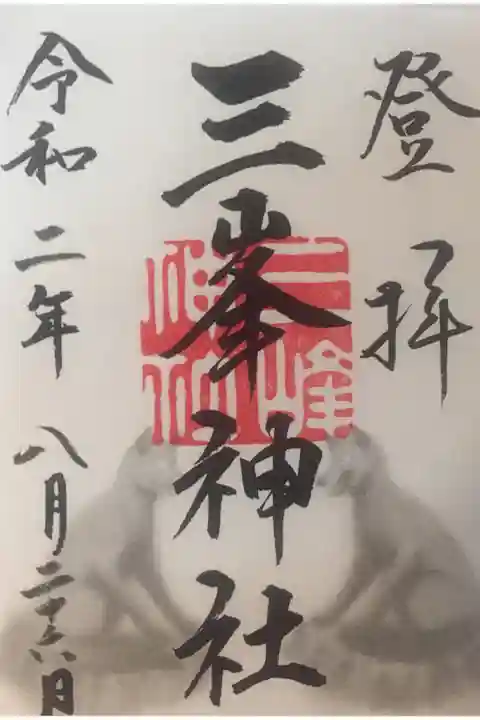 登拝
三峯神社
三峰
神社
令和二年八月二十六日